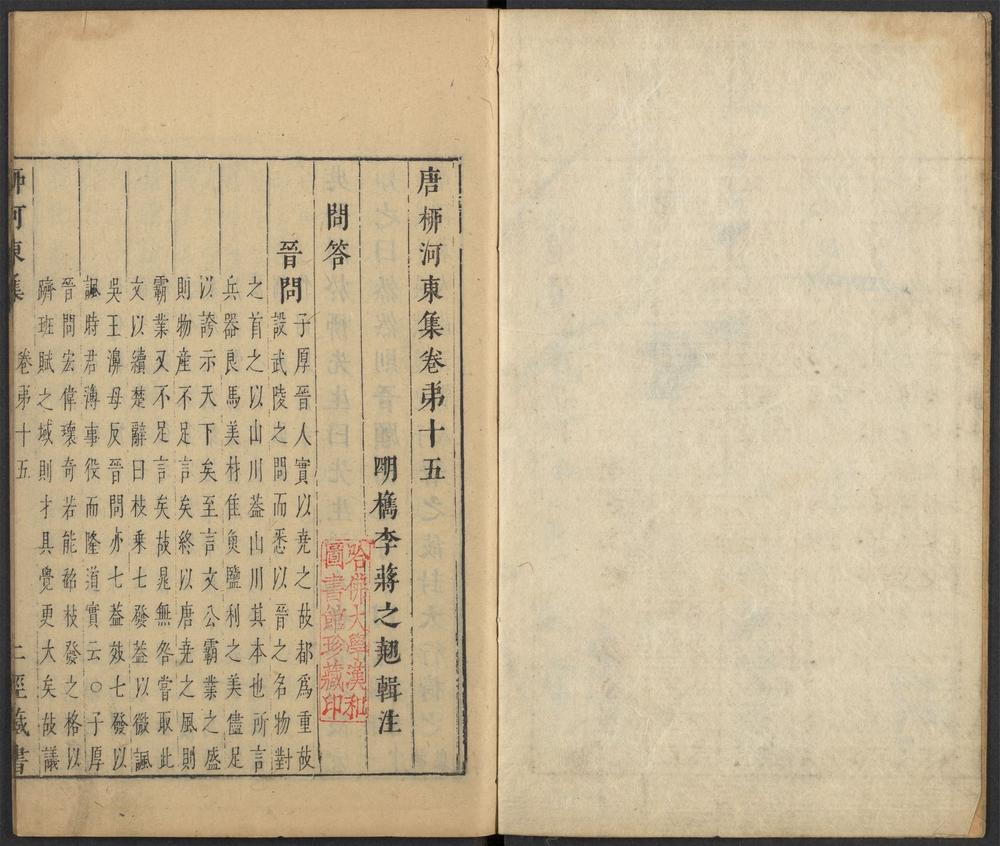 唐栁河東集卷弟十五
明檇李蔣之翹輯注
問答
晉問
子厚晉人實以堯之故都爲重故
設武陵之問而悉以晉之名物對
之首之以山川葢山川其本也所言
兵器良馬美材隹魚鹽利之美儘足
以誇示天下矣至言文公霸業之盛
則物産不足言矣終以唐堯之風則
霸業又不足言矣故晁無咎嘗取此
文以續楚辭曰枚乗七發葢以微諷
吳王濞毋反晉問亦七葢效七發以
諷時君薄事役而隆道實云○子厚
晉問宏偉瓌奇若能砭枚發之格以
躋班賦之域則才具覺更大矣故議
栁河東集
卷弟十五
二
徑藏書
哈佛大學漢和
圖書館珍藏印